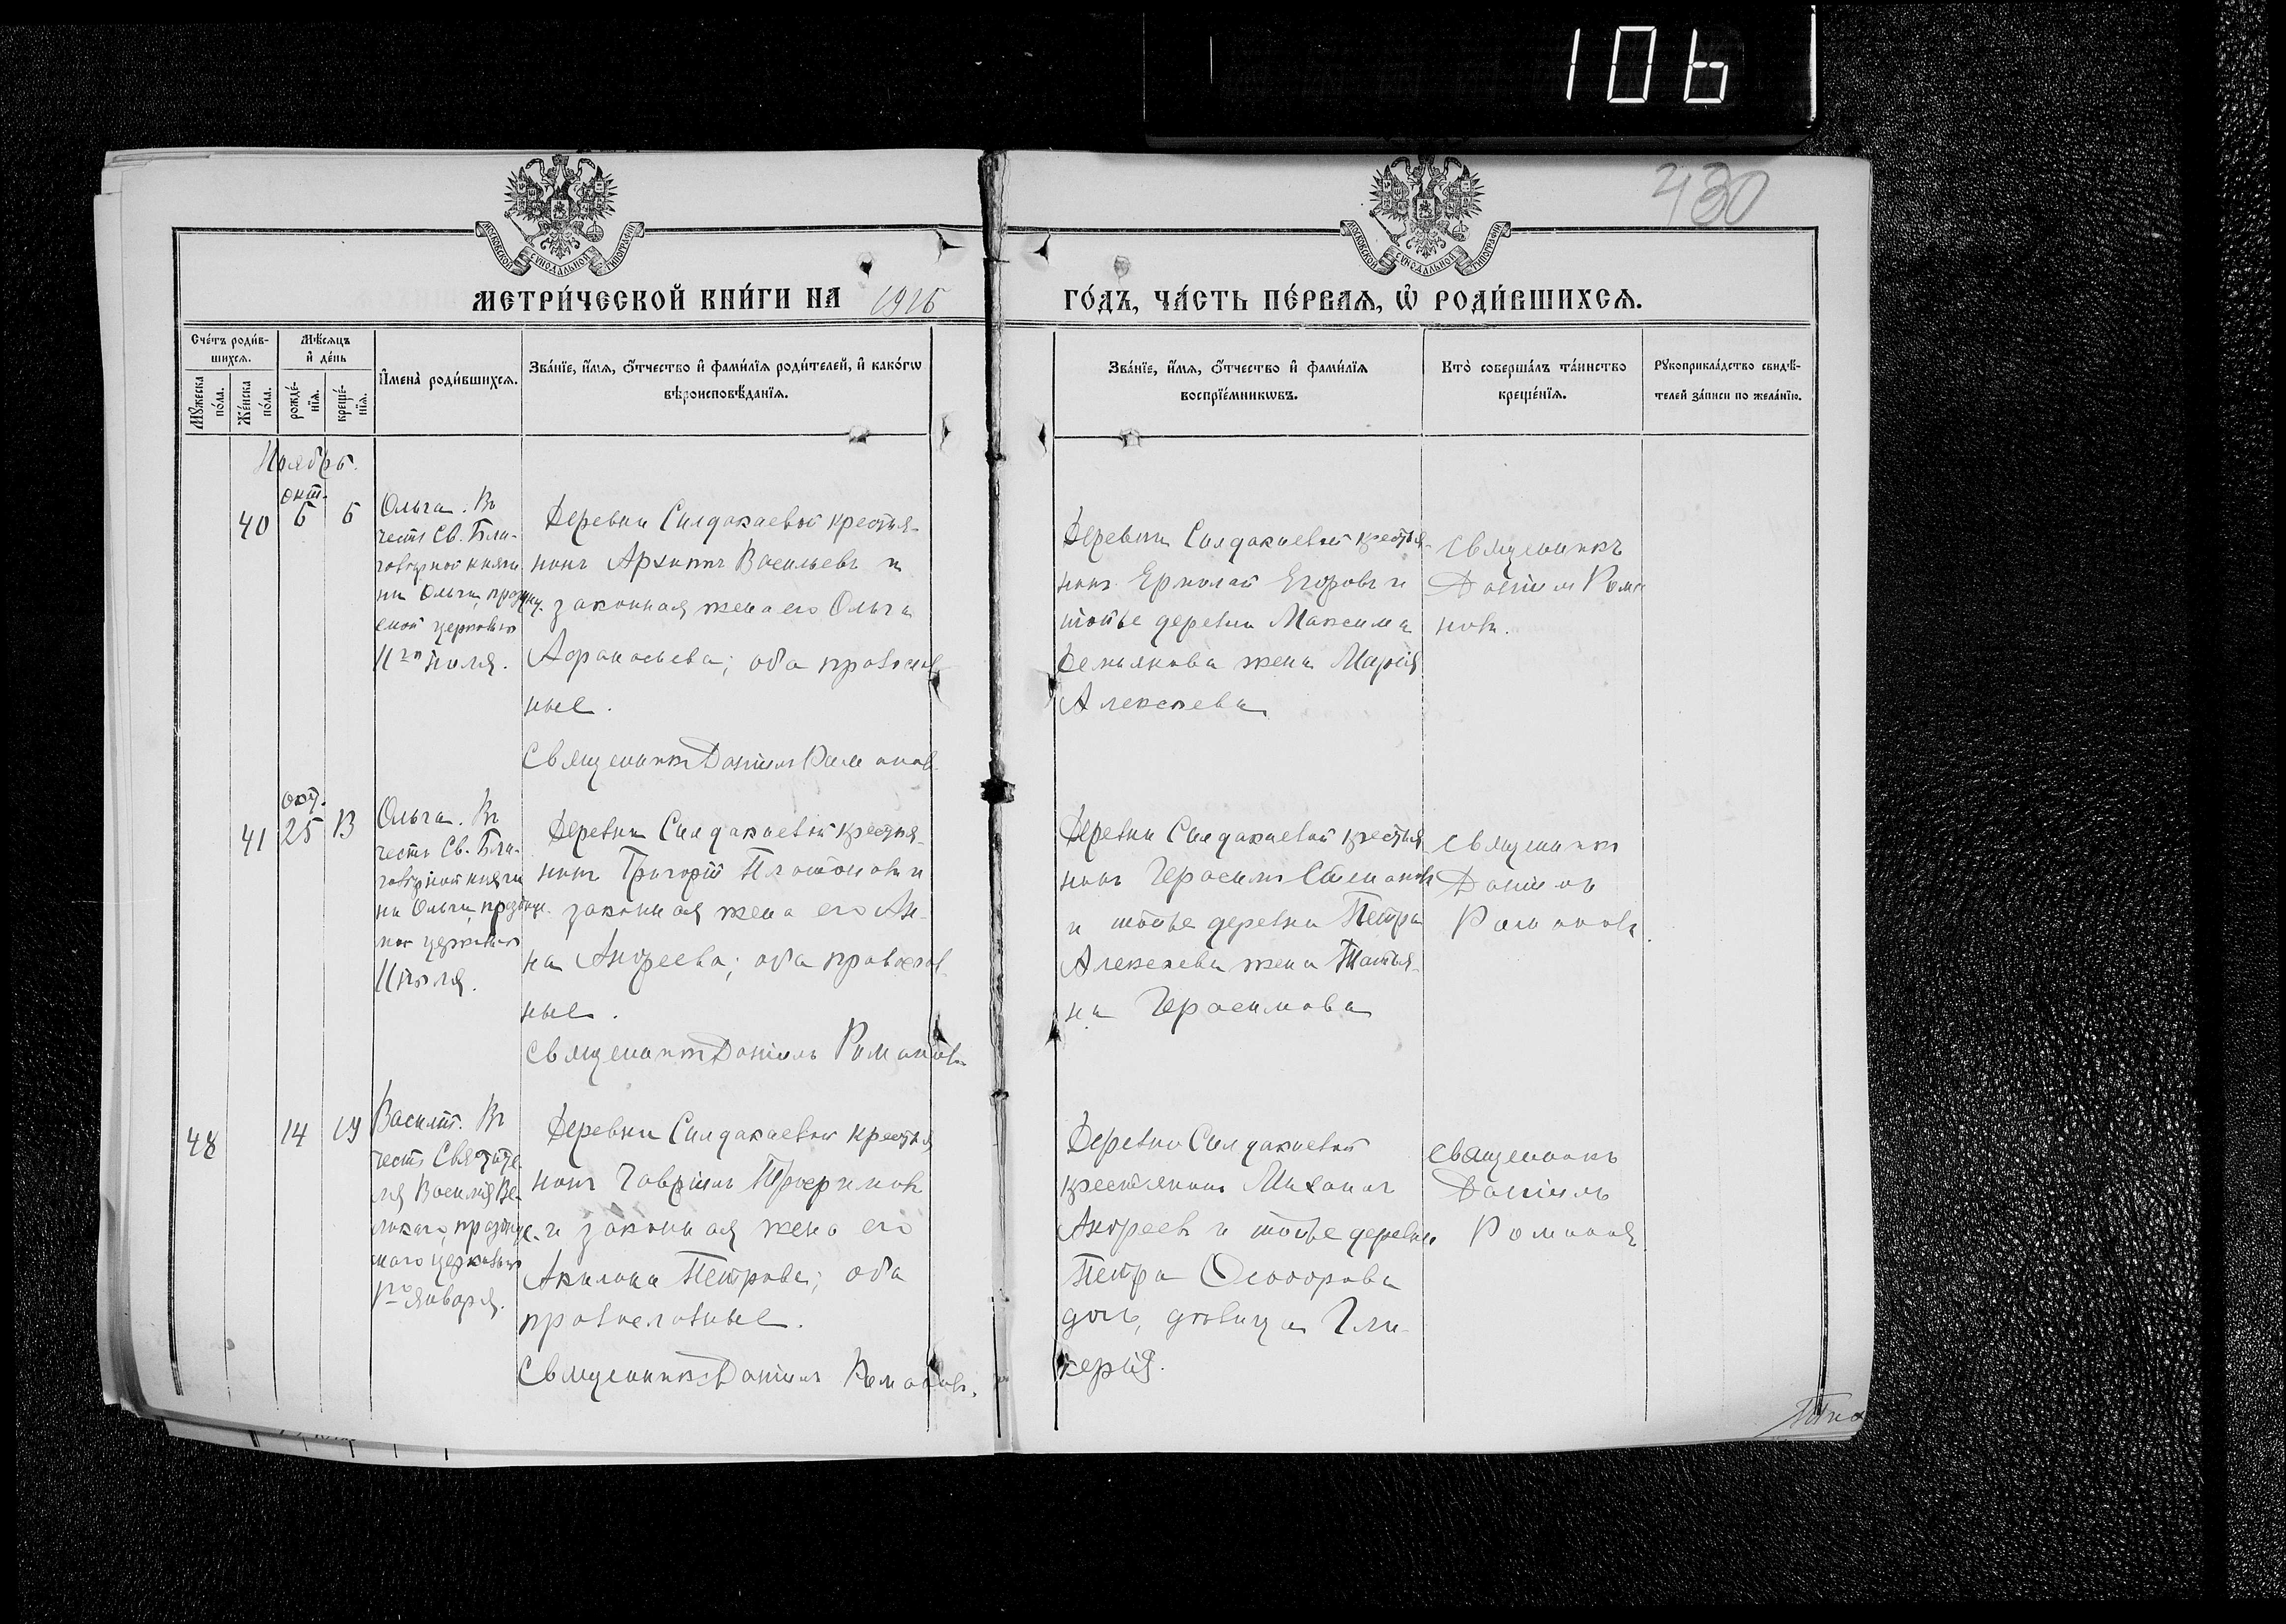 106
430
МОСКОВСКОЙ СѴНОДАЛЬНОЙ ТИПОГРАФІИ
МОСКОВСКОЙ СѴНОДАЛЬНОЙ ТИПОГРАФІИ
МЕТРИ́ЧЕСКОЙ КНИ́ГИ НА 1916
ГО́ДЪ, ЧА́СТЬ ПЕ́РВАЯ, Ѡ҆ РОДИ́ВШИХСЯ.
Сче́тъ роди́в-
шихся.
Мѣ́сяцъ
и҆ де́нь
Мꙋ́жеска
по́ла.
Же́нска
по́ла.
рожде́-
нїѧ.
креще́-
нїѧ.
И҆мена̀ роди́вшихся.
Зва́нїе, и҆́мя, ѻ҆́тчество и҆ фами́лїя роди́телей, и҆ како́гѡ
вѣроисповѣ́данїя.
Зва́нїе, и҆́мя, ѻ҆́тчество и҆ фами́лїя
воспрїе́мникѡвъ.
Кто̀ соверша́лъ та́инство
креще́нїя.
Рꙋкоприкла́дство свидѣ́-
телей за́писи по жела́нїю.
Ноябрь.
окт.
40 6 6
Ольга. Въ
честь Св. Бла-
говѣрной княги
ни Ольги, праздну
емой церковью
11го Іюля.
Деревни Силдакаевой крестья-
нинъ Архипъ Васильевъ и
законная жена его Ольга
Афанасьева; оба православ
ные.
Священникъ Даніилъ Романов
Деревни Силдакаевой крестья-
нинъ Ермолай Егоровъ и
тойже деревни Максима
Демьянова жена Марія
Алексеева
Священникъ
Даніилъ Рома
новъ.
окт.
41 25 13
Ольга. Въ
честь Св. Бла-
говѣрной княги
ни Ольги, праздну
мой церковью
11 Іюля.
Деревни Силдакаевой крестья-
нинъ Григорій Платоновъ и
законная жена его Ан-
на Андреева; оба православ-
ные.
Священникъ Даніилъ Романовъ
Деревни Силдакаевой крестья
нинъ Герасимъ Степановъ
и тойже деревни Петра
Алексеева жена Татья-
на Герасимова
Священникъ
Даніилъ
Романовъ.
48 14 19
Василій. Въ
честь Святите
ля Василія Ве-
ликаго, праздну
маго церковью
1го Января.
Деревни Силдакаевой крестья
нинъ Гавріилъ Трофимов
и законная жена его
Акилина Петрова; оба
православные.
Священникъ Даніилъ Романовъ.
Деревни Силдакаевой
крестьянинъ Михаилъ
Андреевъ и тойже деревни
Петра Ѳеодорова
дочь, девица Гли
керія.
Священникъ
Даніилъ
Романовъ